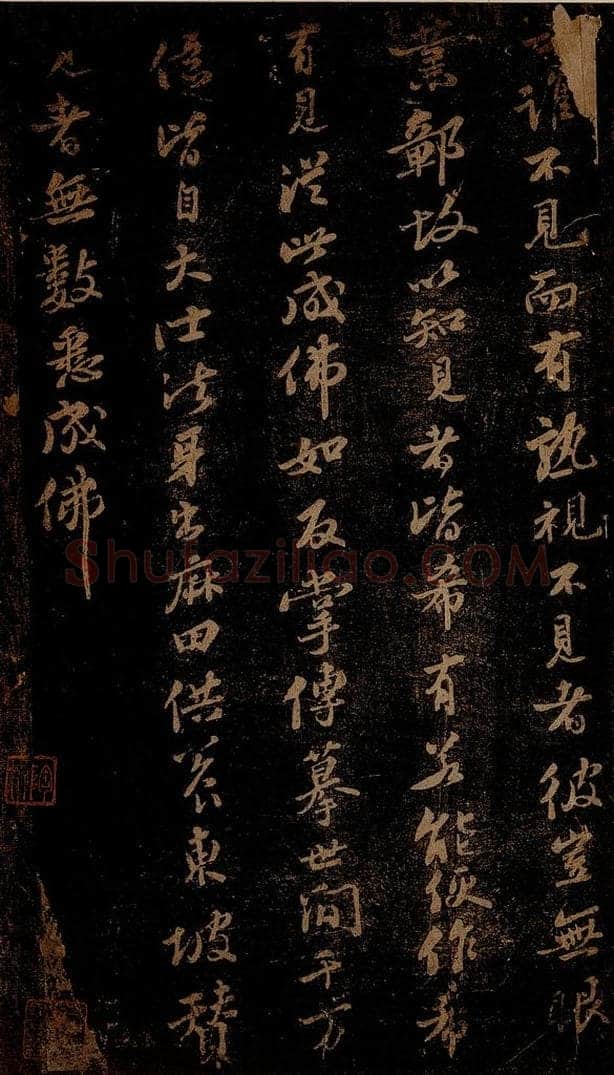 誰不見而有孰視不見者彼豈無眼
業鄣故以知見者皆希有若能便作希
有見從此成佛如反掌傳摹世間千万
億皆自大士法身出麻田供養東坡贊
見者無數悉成佛
Shufaziliao.COM